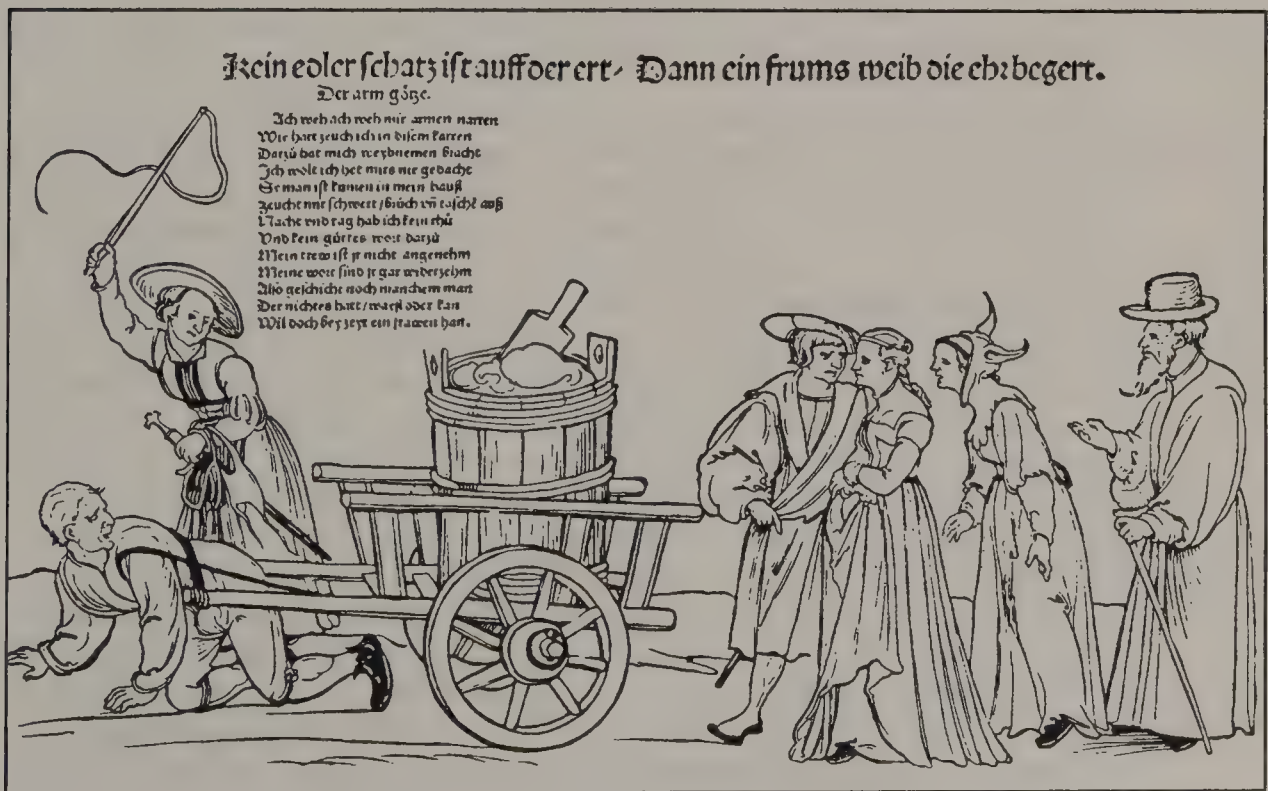 Kein edler schatz ist auff der ert / Dann ein frums weib die ehr begert.
Der arm götze.
Ach weh ach weh mir armen narren
Wie hart zeuch ich in disem karren
Darzů hat mich weybnemen bracht
Ich wolt ich het mirs nie gedacht
Se man ist kumen in mein hauß
zeucht mir schwert / brůch vñ taschẽ auß
Nacht vnd tag hab ich kein rhů
Vnd kein gůttes wort darzů
Mein trew ist jr nicht angenehm
Meine wort sind jr gar widerzehm
Also geschicht noch manchem man
Der nichtes hatt / waist oder kan
Wil doch bey zeyt ein frawen han.